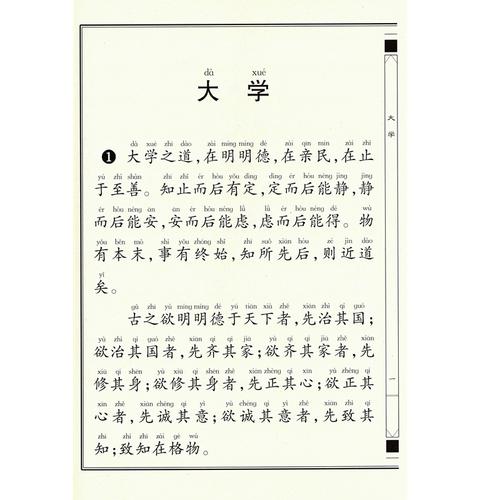 dà xué
大 学
dà xué zhī dào zài míng míng dé zài qīn mín zài zhǐ
❶ 大学之道，在明明德，在亲民，在止
yú zhì shàn zhī zhǐ ér hòu yǒu dìng dìng ér hòu néng jìng jìng
于至善。知止而后有定，定而后能静，静
ér hòu néng ān ān ér hòu néng lǜ lǜ ér hòu néng dé wù
而后能安，安而后能虑，虑而后能得。物
yǒu běn mò shì yǒu zhōng shǐ zhī suǒ xiān hòu zé jìn dào
有本末，事有终始，知所先后，则近道
yǐ
矣。
gǔ zhī yù míng míng dé yú tiān xià zhě xiān zhì qí guó
古之欲明明德于天下者，先治其国；
yù zhì qí guó zhě xiān qí qí jiā yù qí qí jiā zhě xiān
欲治其国者，先齐其家；欲齐其家者，先
xiū qí shēn yù xiū qí shēn zhě xiān zhèng qí xīn yù zhèng qí
修其身；欲修其身者，先正其心；欲正其
xīn zhě xiān chéng qí yì yù chéng qí yì zhě xiān zhì qí
心者，先诚其意；欲诚其意者，先致其
zhī zhì zhī zài gé wù
知；致知在格物。
大学
一